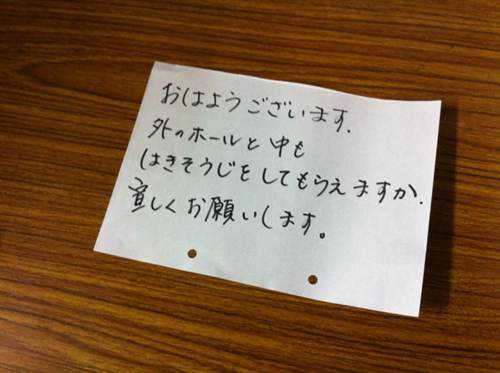 おはようございます.
外のホールと中も
はきそうじをしてもらえますか.
宜しくお願いします。